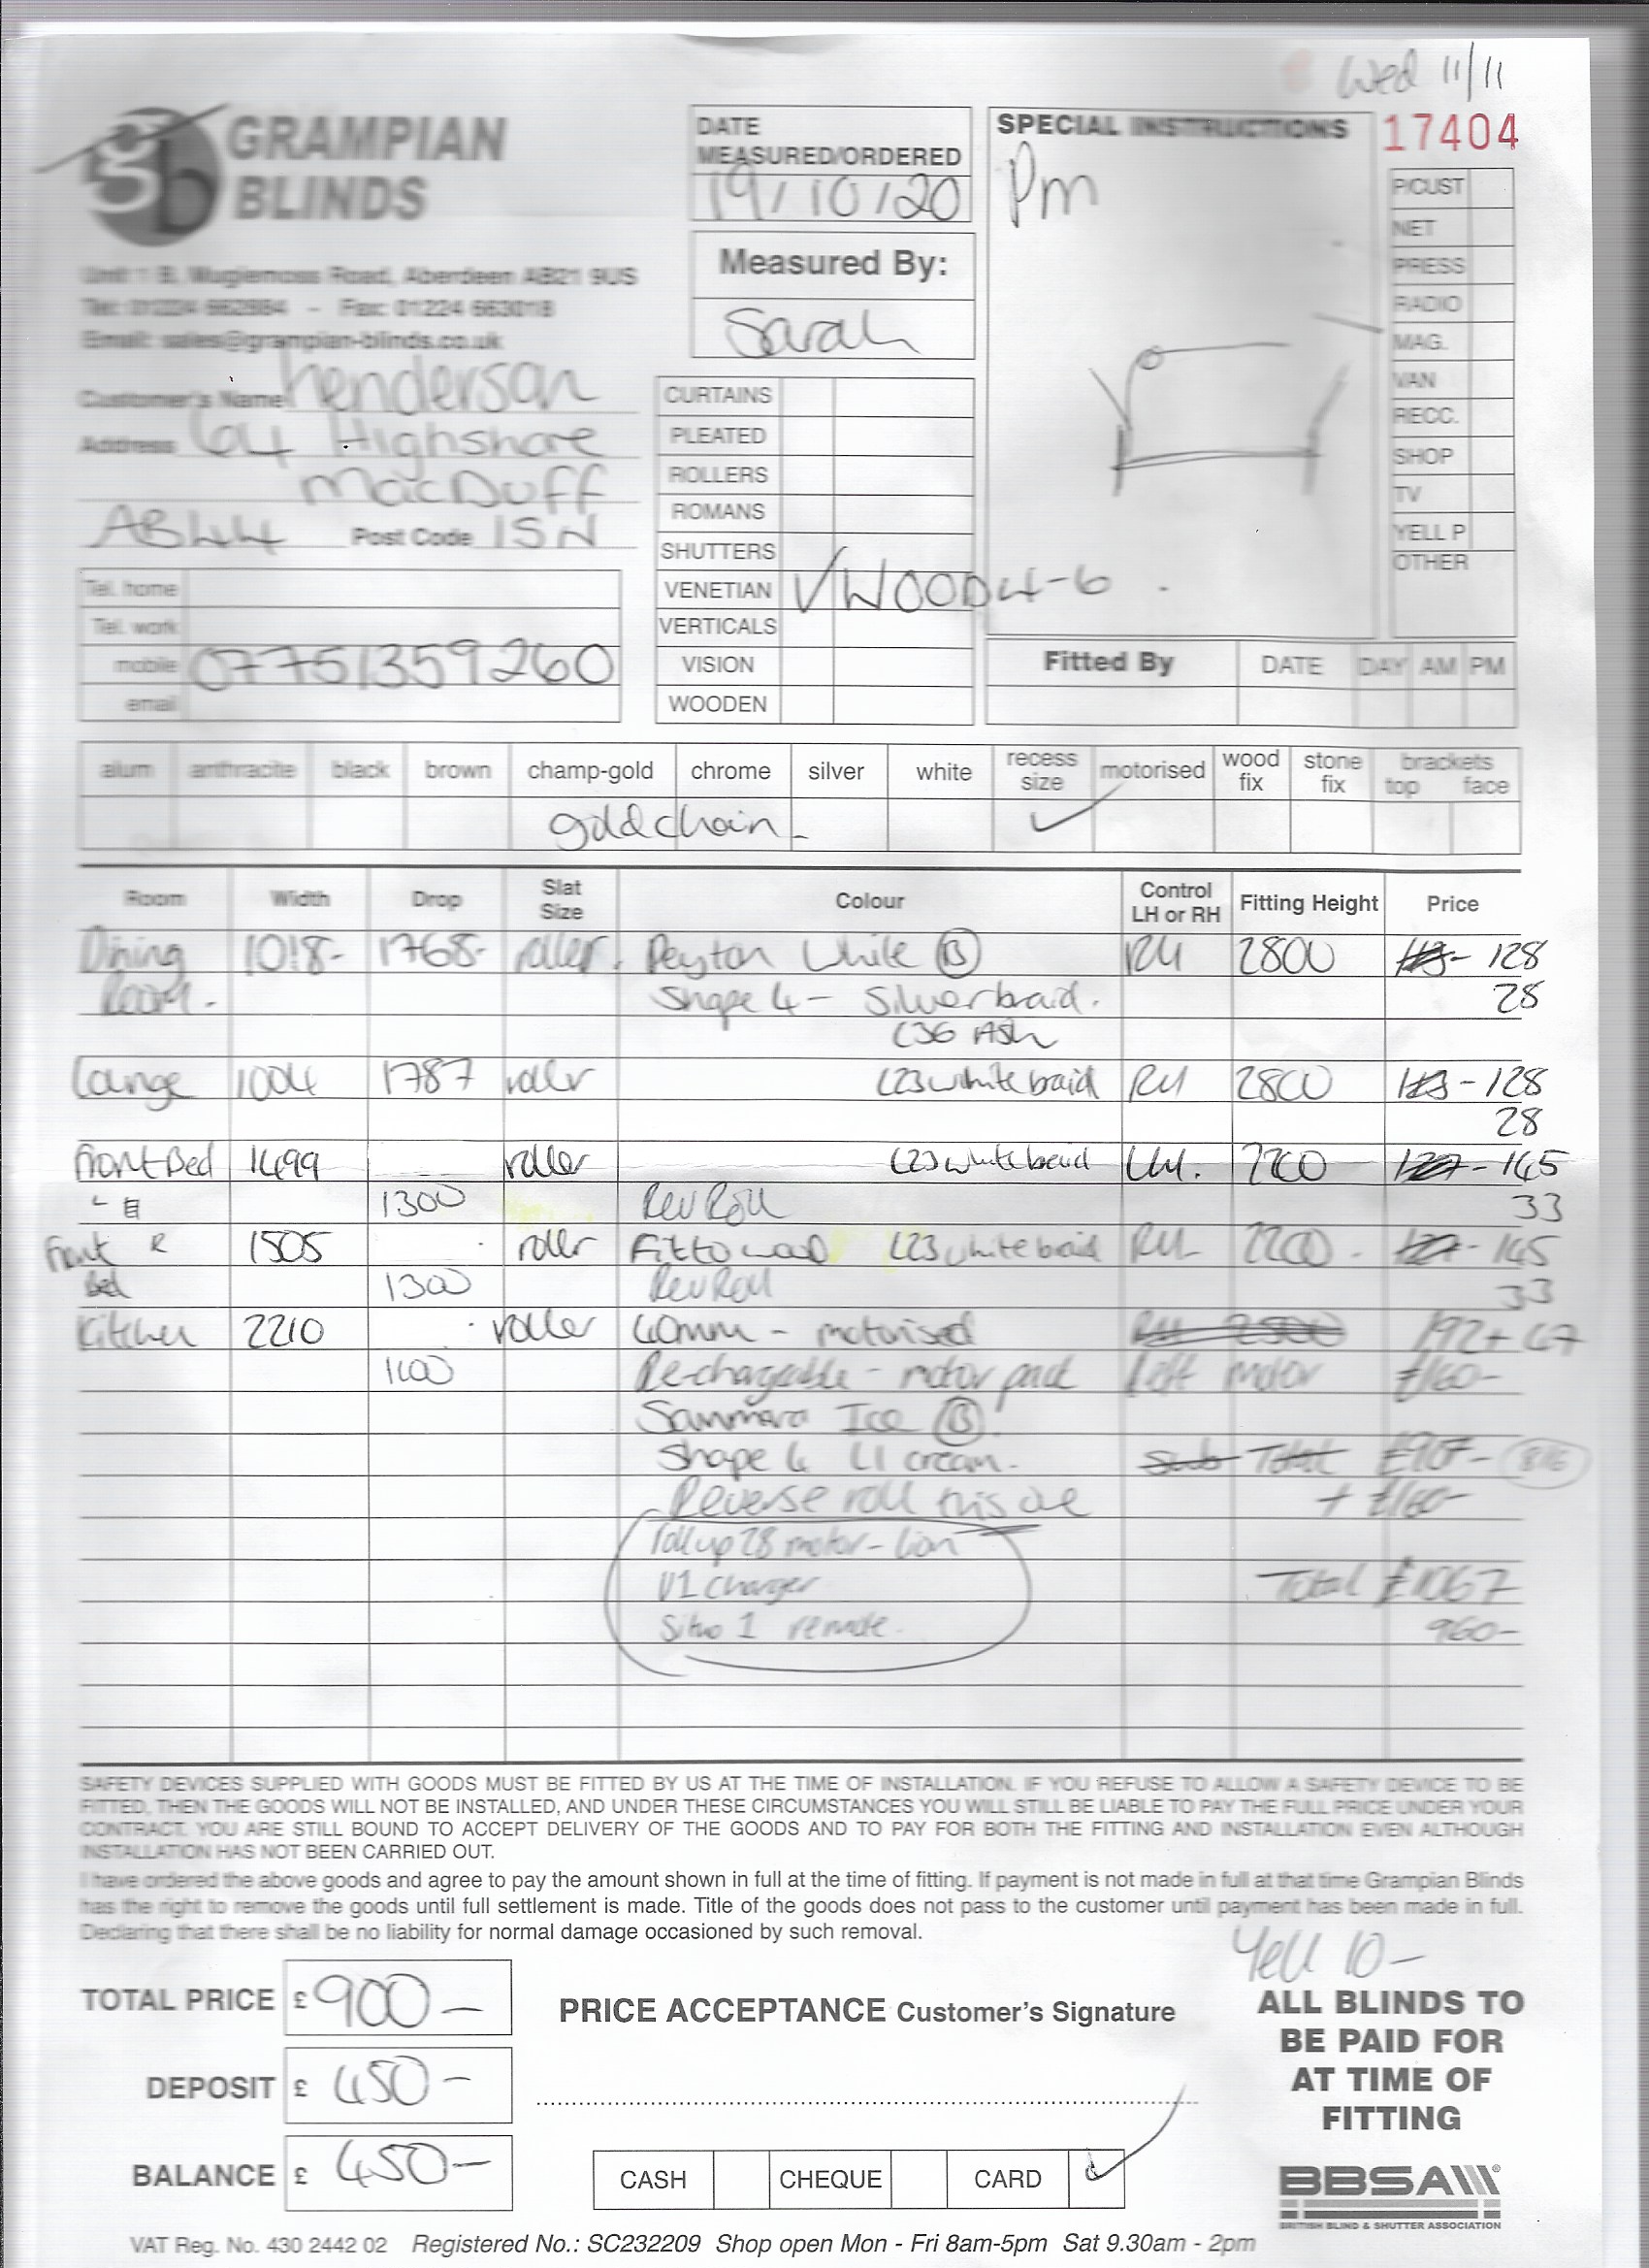 Wed 11/11
GRAMPIAN
BLINDS
Unit 1 B, Mugiemoss Road, Aberdeen AB21 9US
Tel: 01224 662864 - Fax: 01224 663018
Email: sales@grampian-blinds.co.uk
DATE
MEASURED/ORDERED
19/10/20
Measured By:
Sarah
SPECIAL INSTRUCTIONS
17404
Pm
P/CUST
NET
PRESS
RADIO
MAG.
VAN
RECC.
SHOP
TV
YELL P
OTHER
Customer's Name Henderson
Address 64 Highshore
MacDuff
AB44 Post Code 1SN
Tel. home
Tel. work
mobile 07751359260
email
CURTAINS
PLEATED
ROLLERS
ROMANS
SHUTTERS
VENETIAN WOOD 4-6
VERTICALS
VISION
WOODEN
Fitted By DATE DAY AM PM
alum anthracite black brown champ-gold chrome silver white recess size motorised wood fix stone fix brackets top face
gold chain
Room Width Drop Slat Size Colour Control LH or RH Fitting Height Price
Dining 1018- 1768- roller. Peyton White B RH 2800 128
Room. Shape 4 - Silver braid. 28
C36 Ash
Lounge 1004 1787 roller L23 white braid RH 2800 - 128
28
Front Bed 1499 roller L23 white braid LH. 2200 - 145
L 1300 Rev Roll 33
Front R 1505 roller Fit to wood L23 white braid RH 2200 - 145
Bed 1300 Rev Roll 33
Kitchen 2210 roller 40mm - motorised RH 2500 192+47
1100 Re-chargeable - motor pack Left motor £160-
Sammara Ice B
Shape 4 L1 cream. Sub Total £907-
Reverse roll this one + £160-
roll up 28 motor - Lion
V1 Charger Total £1067
Situo 1 remote. 960-
SAFETY DEVICES SUPPLIED WITH GOODS MUST BE FITTED BY US AT THE TIME OF INSTALLATION. IF YOU REFUSE TO ALLOW A SAFETY DEVICE TO BE
FITTED, THEN THE GOODS WILL NOT BE INSTALLED, AND UNDER THESE CIRCUMSTANCES YOU WILL STILL BE LIABLE TO PAY THE FULL PRICE UNDER YOUR
CONTRACT. YOU ARE STILL BOUND TO ACCEPT DELIVERY OF THE GOODS AND TO PAY FOR BOTH THE FITTING AND INSTALLATION EVEN ALTHOUGH
INSTALLATION HAS NOT BEEN CARRIED OUT.
I have ordered the above goods and agree to pay the amount shown in full at the time of fitting. If payment is not made in full at that time Grampian Blinds
has the right to remove the goods until full settlement is made. Title of the goods does not pass to the customer until payment has been made in full.
Declaring that there shall be no liability for normal damage occasioned by such removal.
Yell 10-
TOTAL PRICE £ 900-
DEPOSIT £ 450-
BALANCE £ 450-
PRICE ACCEPTANCE Customer's Signature
CASH CHEQUE CARD
ALL BLINDS TO
BE PAID FOR
AT TIME OF
FITTING
BBSA
BRITISH BLIND & SHUTTER ASSOCIATION
VAT Reg. No. 430 2442 02 Registered No.: SC232209 Shop open Mon - Fri 8am-5pm Sat 9.30am - 2pm